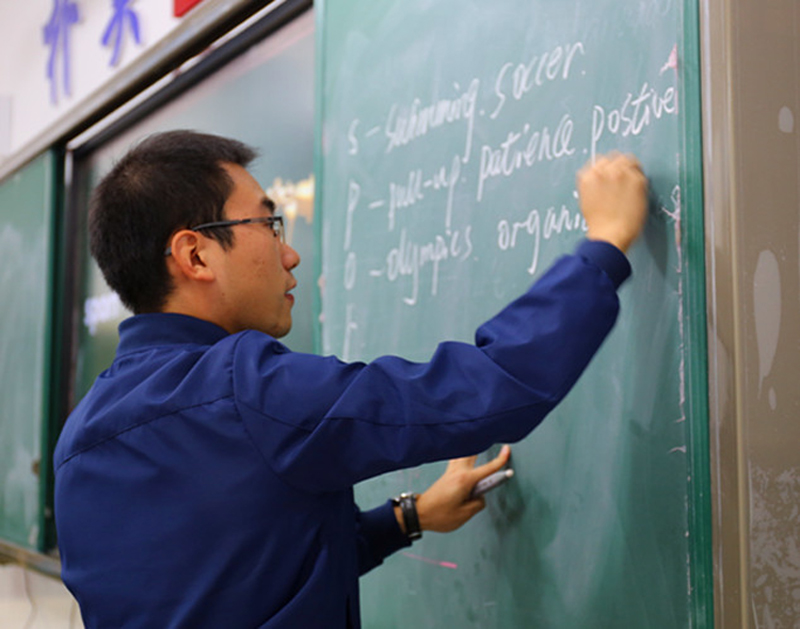 开 天
S - swimming. soccer.
P - pull-up. patience. postive
O - olympics. organi
r